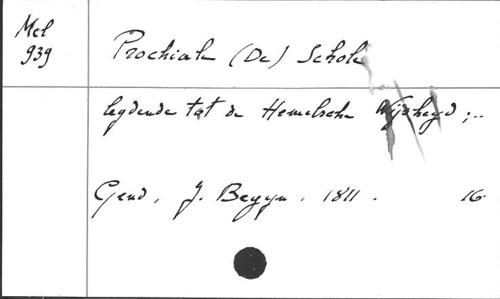 Mel
939
Prochiale (De) Schole
leydende tot de Hemelsche Wijsheyd ;..
Gend, J. Begyn, 1811. 16